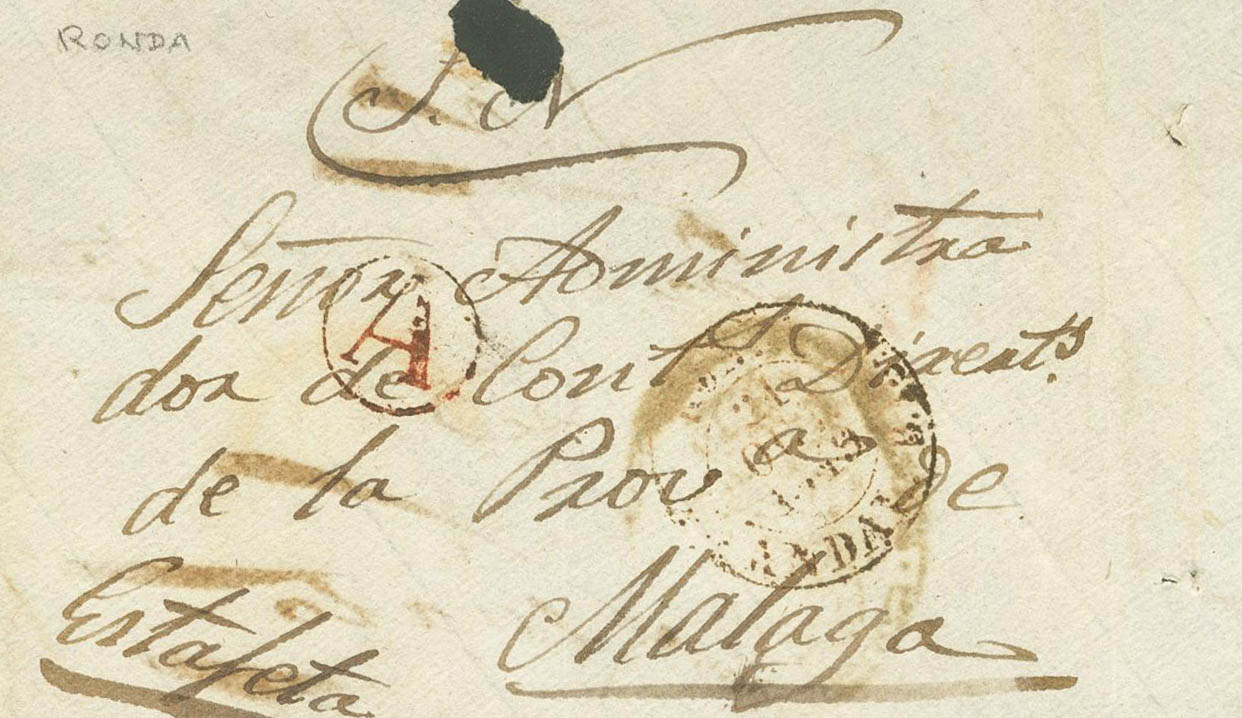 RONDA
S. N
Señor Administra
dor de Cont.s Direct.s
A
de la Prov.a de
Malaga
Estafeta